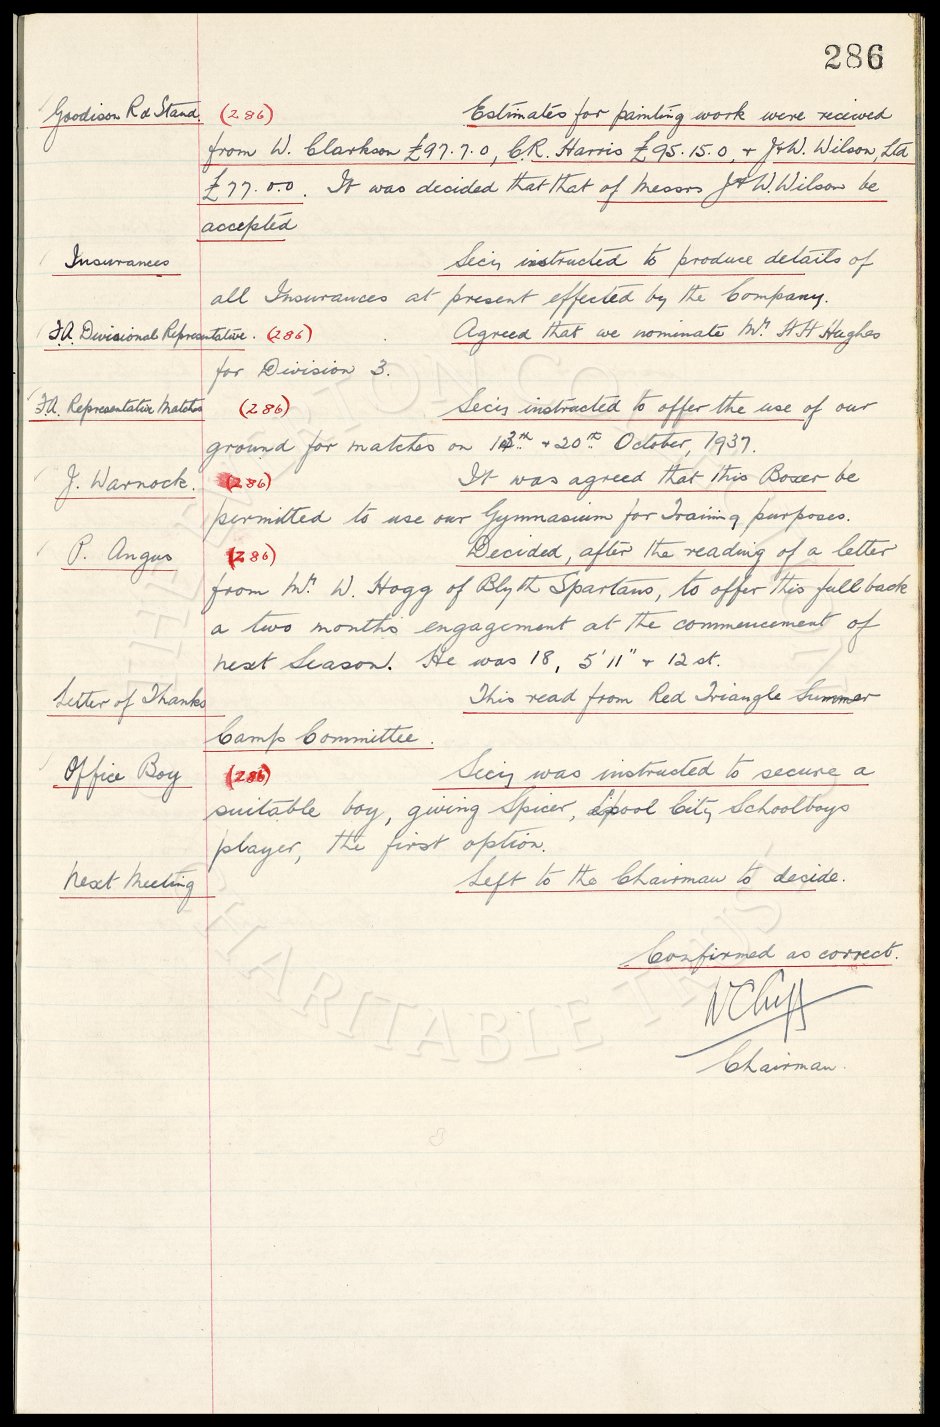 286
Goodison Rd Stand. (286) Estimates for painting work were received
from W. Clarkson £97.7.0, C.R. Harris £95.15.0, + J&W. Wilson, Ltd
£77.0.0. It was decided that that of Messrs J&W. Wilson be
accepted
Insurances Secy instructed to produce details of
all Insurances at present effected by the Company.
F.A. Divisional Representative. (286) Agreed that we nominate Mr. H H Hughes
for Division 3.
F.A. Representative Matches (286) Secy instructed to offer the use of our
ground for matches on 13th + 20th October, 1937.
J. Warnock. (286) It was agreed that this Boxer be
permitted to use our Gymnasium for Training purposes.
P. Angus (286) Decided, after the reading of a letter
from Mr. W. Hogg of Blyth Spartans, to offer this full back
a two months engagement at the commencement of
next Season. He was 18, 5'11" + 12 st.
Letter of Thanks This read from Red Triangle Summer
Camp Committee.
Office Boy (286) Secy was instructed to secure a
suitable boy, giving Spicer, L'pool City Schoolboys
player, the first option.
Next Meeting Left to the Chairman to decide.
Confirmed as correct.
W C Cuff
Chairman.
THE EVERTON COLLECTION
CHARITABLE TRUST